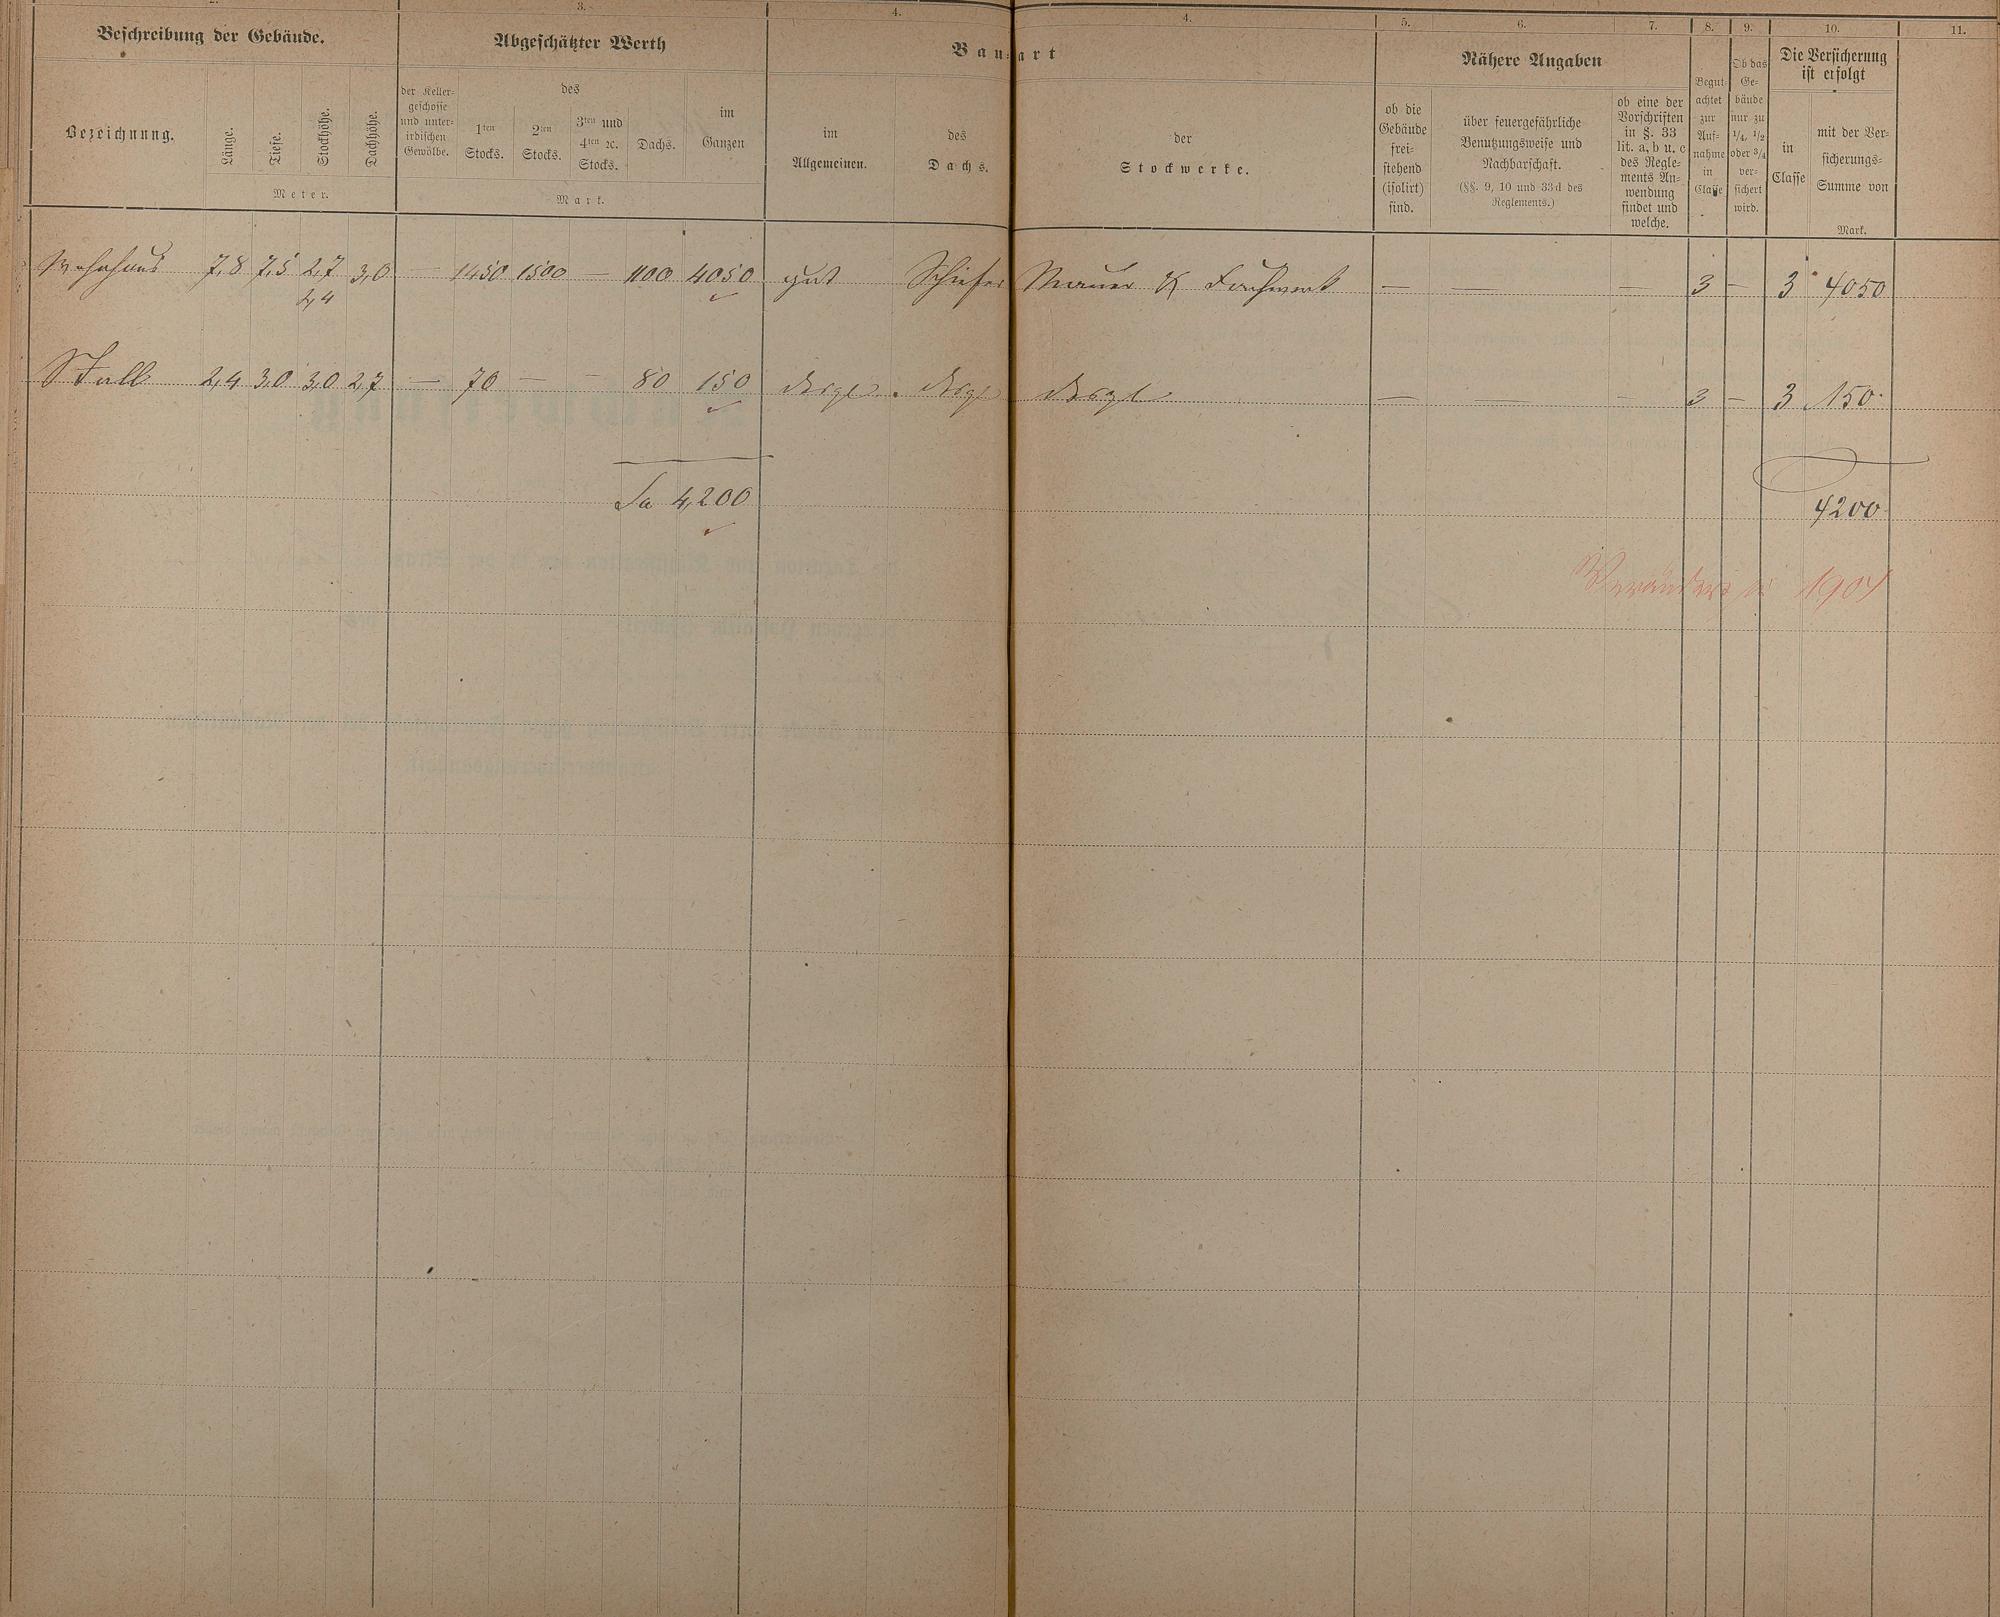 2. 3. 4. 4. 5. 6. 7. 8. 9. 10. 11.
Beschreibung der Gebäude.
Abgeschätzter Werth
Bau-art
Nähere Angaben
Die Versicherung
ist erfolgt
Bezeichnung.
Länge.
Tiefe.
Stockhöhe.
Dachhöhe.
Meter.
der Keller-
geschosse
und unter-
irdischen
Gewölbe.
des
1ten
Stocks.
2ten
Stocks.
3ten und
4ten ꝛc.
Stocks.
Dachs.
im
Ganzen
Mark.
im
Allgemeinen.
des
Dachs.
der
Stockwerke.
ob die
Gebäude
frei-
stehend
(isolirt)
sind.
über feuergefährliche
Benutzungsweise und
Nachbarschaft.
(§§. 9, 10 und 33d des
Reglements.)
ob eine der
Vorschriften
in §. 33
lit. a, b u. c
des Regle-
ments An-
wendung
findet und
welche.
Begut-
achtet
zur
Auf-
nahme
in
Classe
Ob das
Ge-
bäude
nur zu
1/4, 1/2
oder 3/4
ver-
sichert
wird.
in
Classe
mit der Ver-
sicherungs-
Summe von
Mark.
Wohnhaus 7,8 7,5 2,7 3,0 — 1450 1500 — 1100 4050 gut Schiefer Mauer & Fachwerk — — — 3 — 3 4050
2,4
Stall 2,4 3,0 3,0 2,7 — 70 — — 80 150 desgl. desgl desgl — — — 3 — 3 150.
Sa 4,200
4200
Verändert in 1901